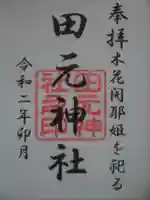 奉拝 木花開耶姫を祀る
田元神社
令和二年卯月